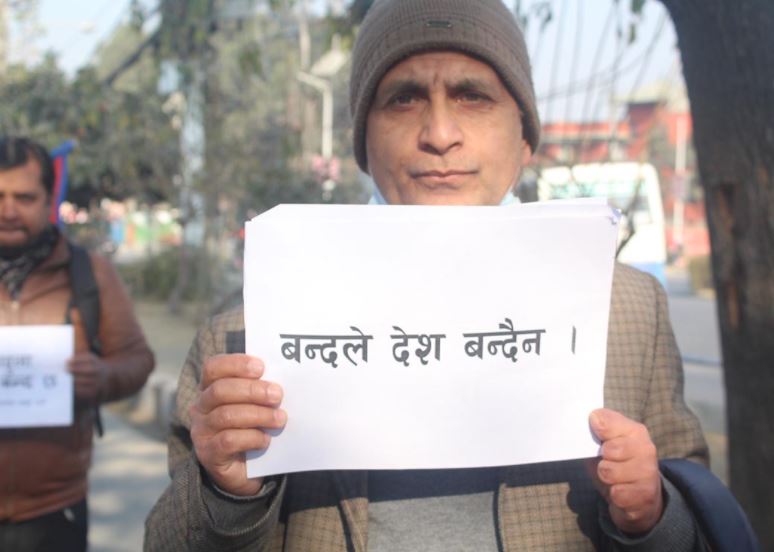 बन्दले देश बन्दैन ।
बन्द छ